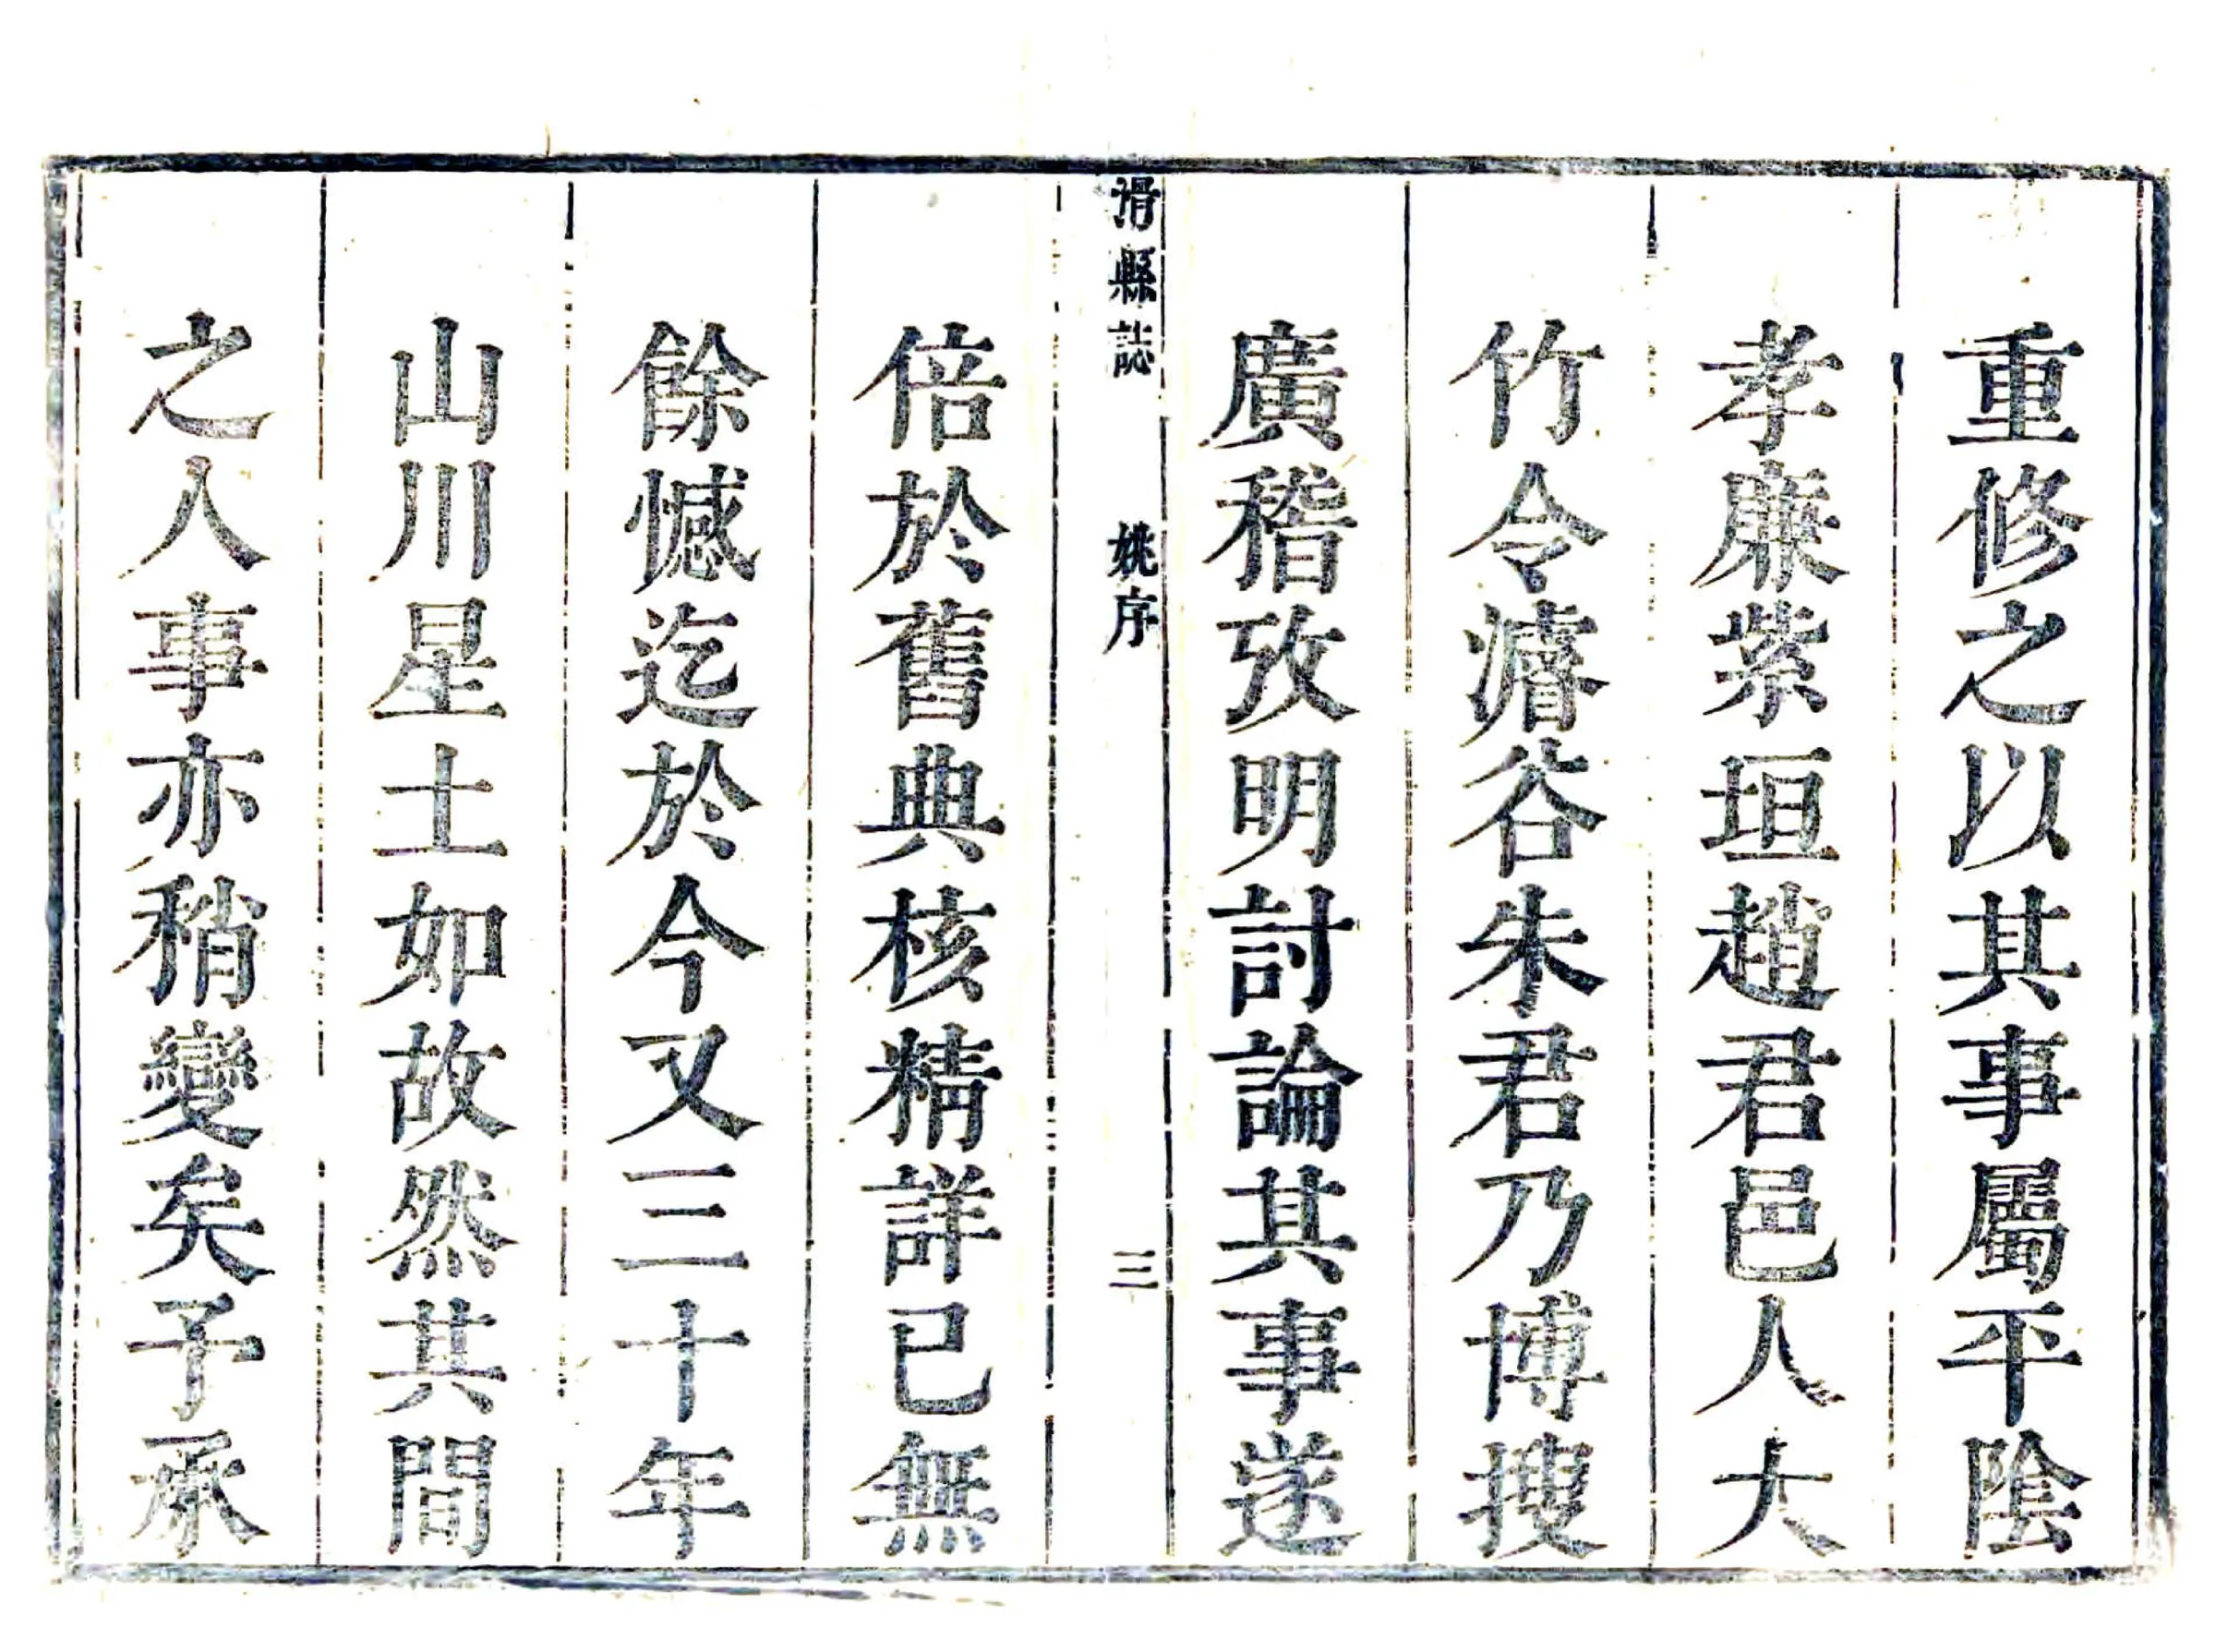 重修之以其事屬平陰
孝廉紫垣趙君邑人大
竹令濬谷朱君乃博搜
廣稽攷明討論其事遂
滑縣誌 姚序 三
倍於舊典核精詳已無
餘憾迄於今又三十年
山川星土如故然其間
之人事亦稍變矣予承